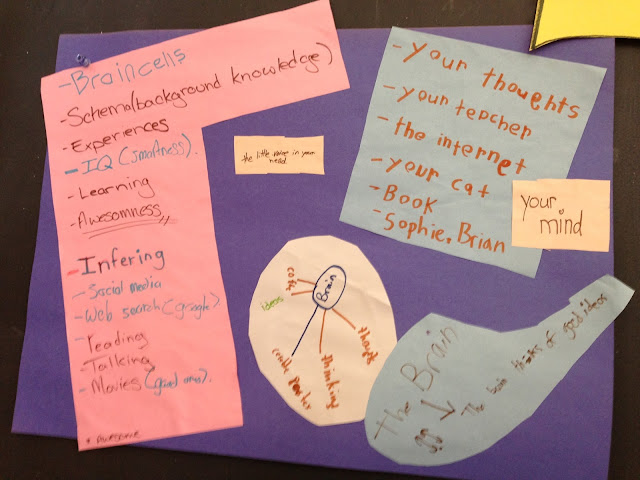 -Braincells
-Schema(background knowledge)
-Experiences
-IQ (smartness).
-Learning
-Awesomness,,
-Infering
-Social media
-Web search (google).
-reading
-Talking
-Movies (good ones).
* Awesome
the little voice in your
head
-your thoughts
-your teacher
-the internet
-your cat
-Book
-Sophie, Brian
your
mind
Brain
ideas
thinking
The Brain
The brain thinks of good ideas